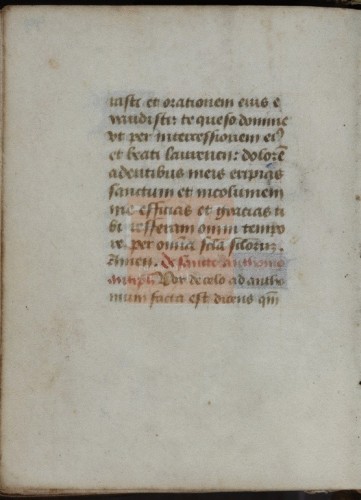 iasti et orationem eius e
xaudisti: te queso domine
vt per intercessionem ei9
et beati laurencii: dolorẽ
a dentibus meis eripias
sanctum et incolumem
me efficias et gracias ti
bi refferam omni tempo
re per omĩa scl̃a sclorum.
Amen. De sancto anthonio
antiph. Vox de celo ad antho
nium facta est dicens qm̃